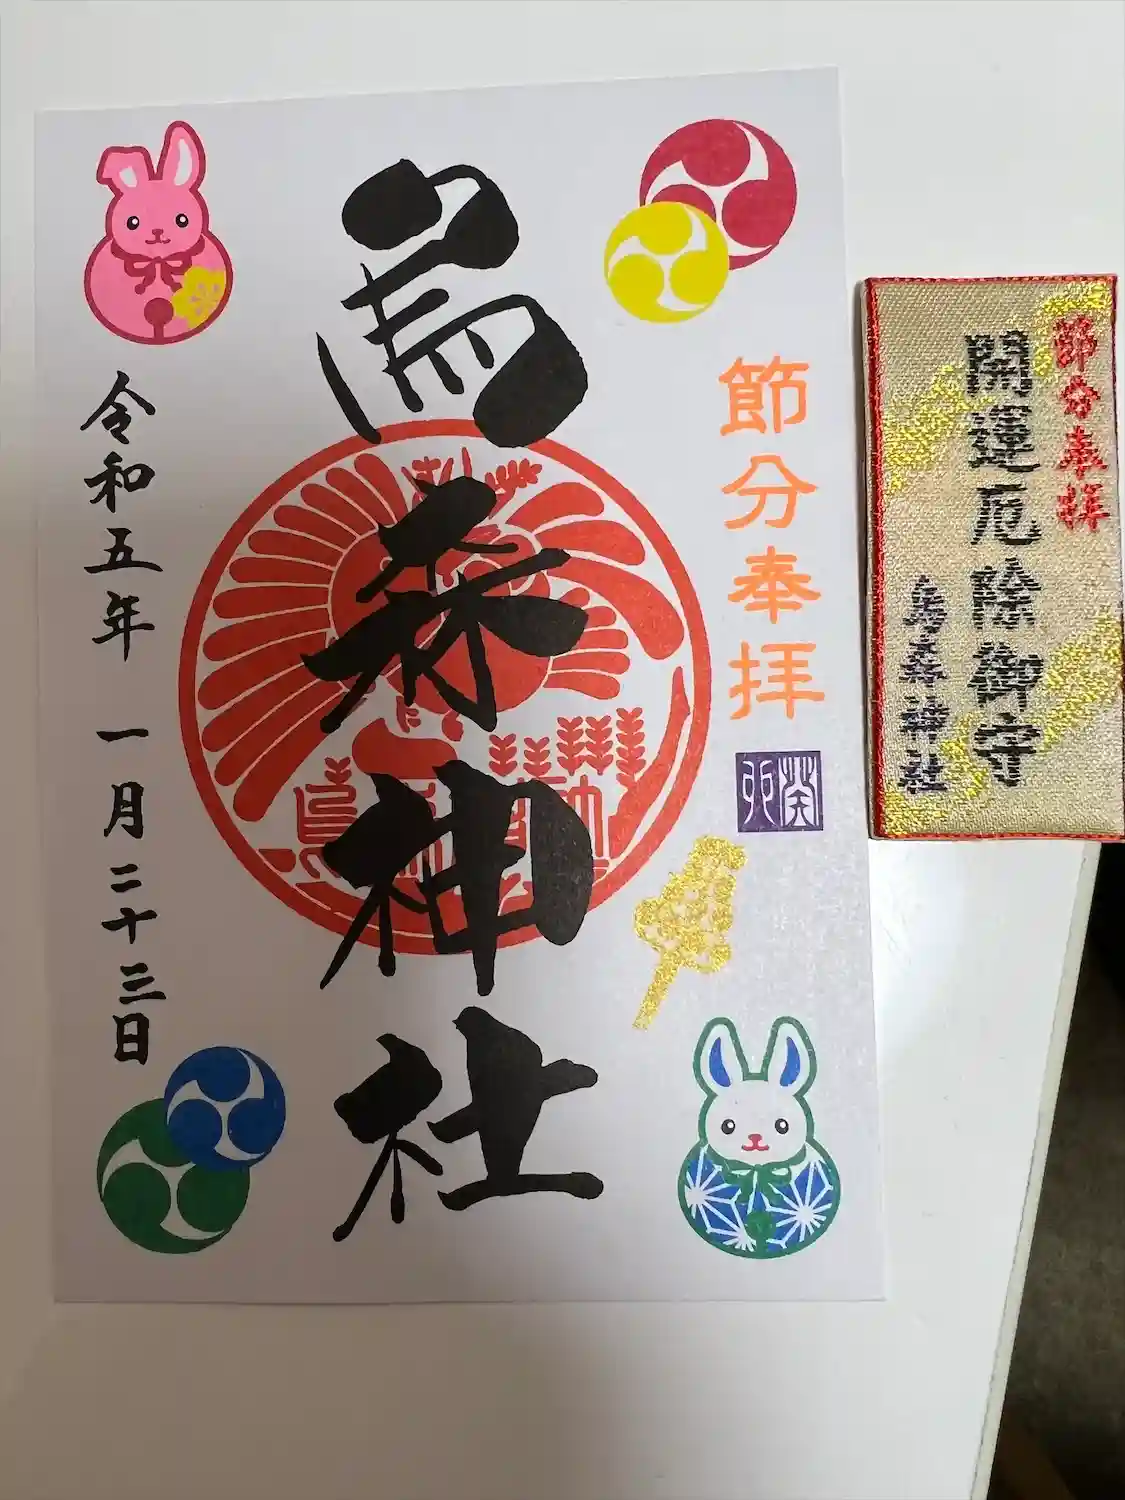 節分奉拝
癸卯
烏森神社
令和五年 一月二十三日
節分奉拝
開運厄除御守
烏森神社